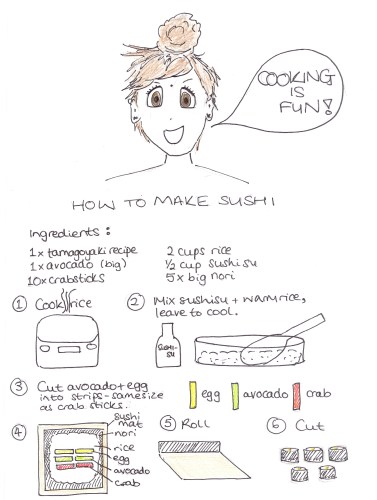 COOKING
IS
FUN!
HOW TO MAKE SUSHI
Ingredients:
1x tamagoyaki recipe
1x avocado (big)
10x crabsticks
2 cups rice
1/2 cup sushisu
5x big nori
1 Cook rice
2 Mix sushisu + warm rice,
leave to cool.
SUSHI-
SU
3 Cut avocado + egg
into strips - same size
as crab sticks.
egg
avocado
crab
4
sushi
mat
nori
rice
egg
avocado
crab
5 Roll
6 Cut